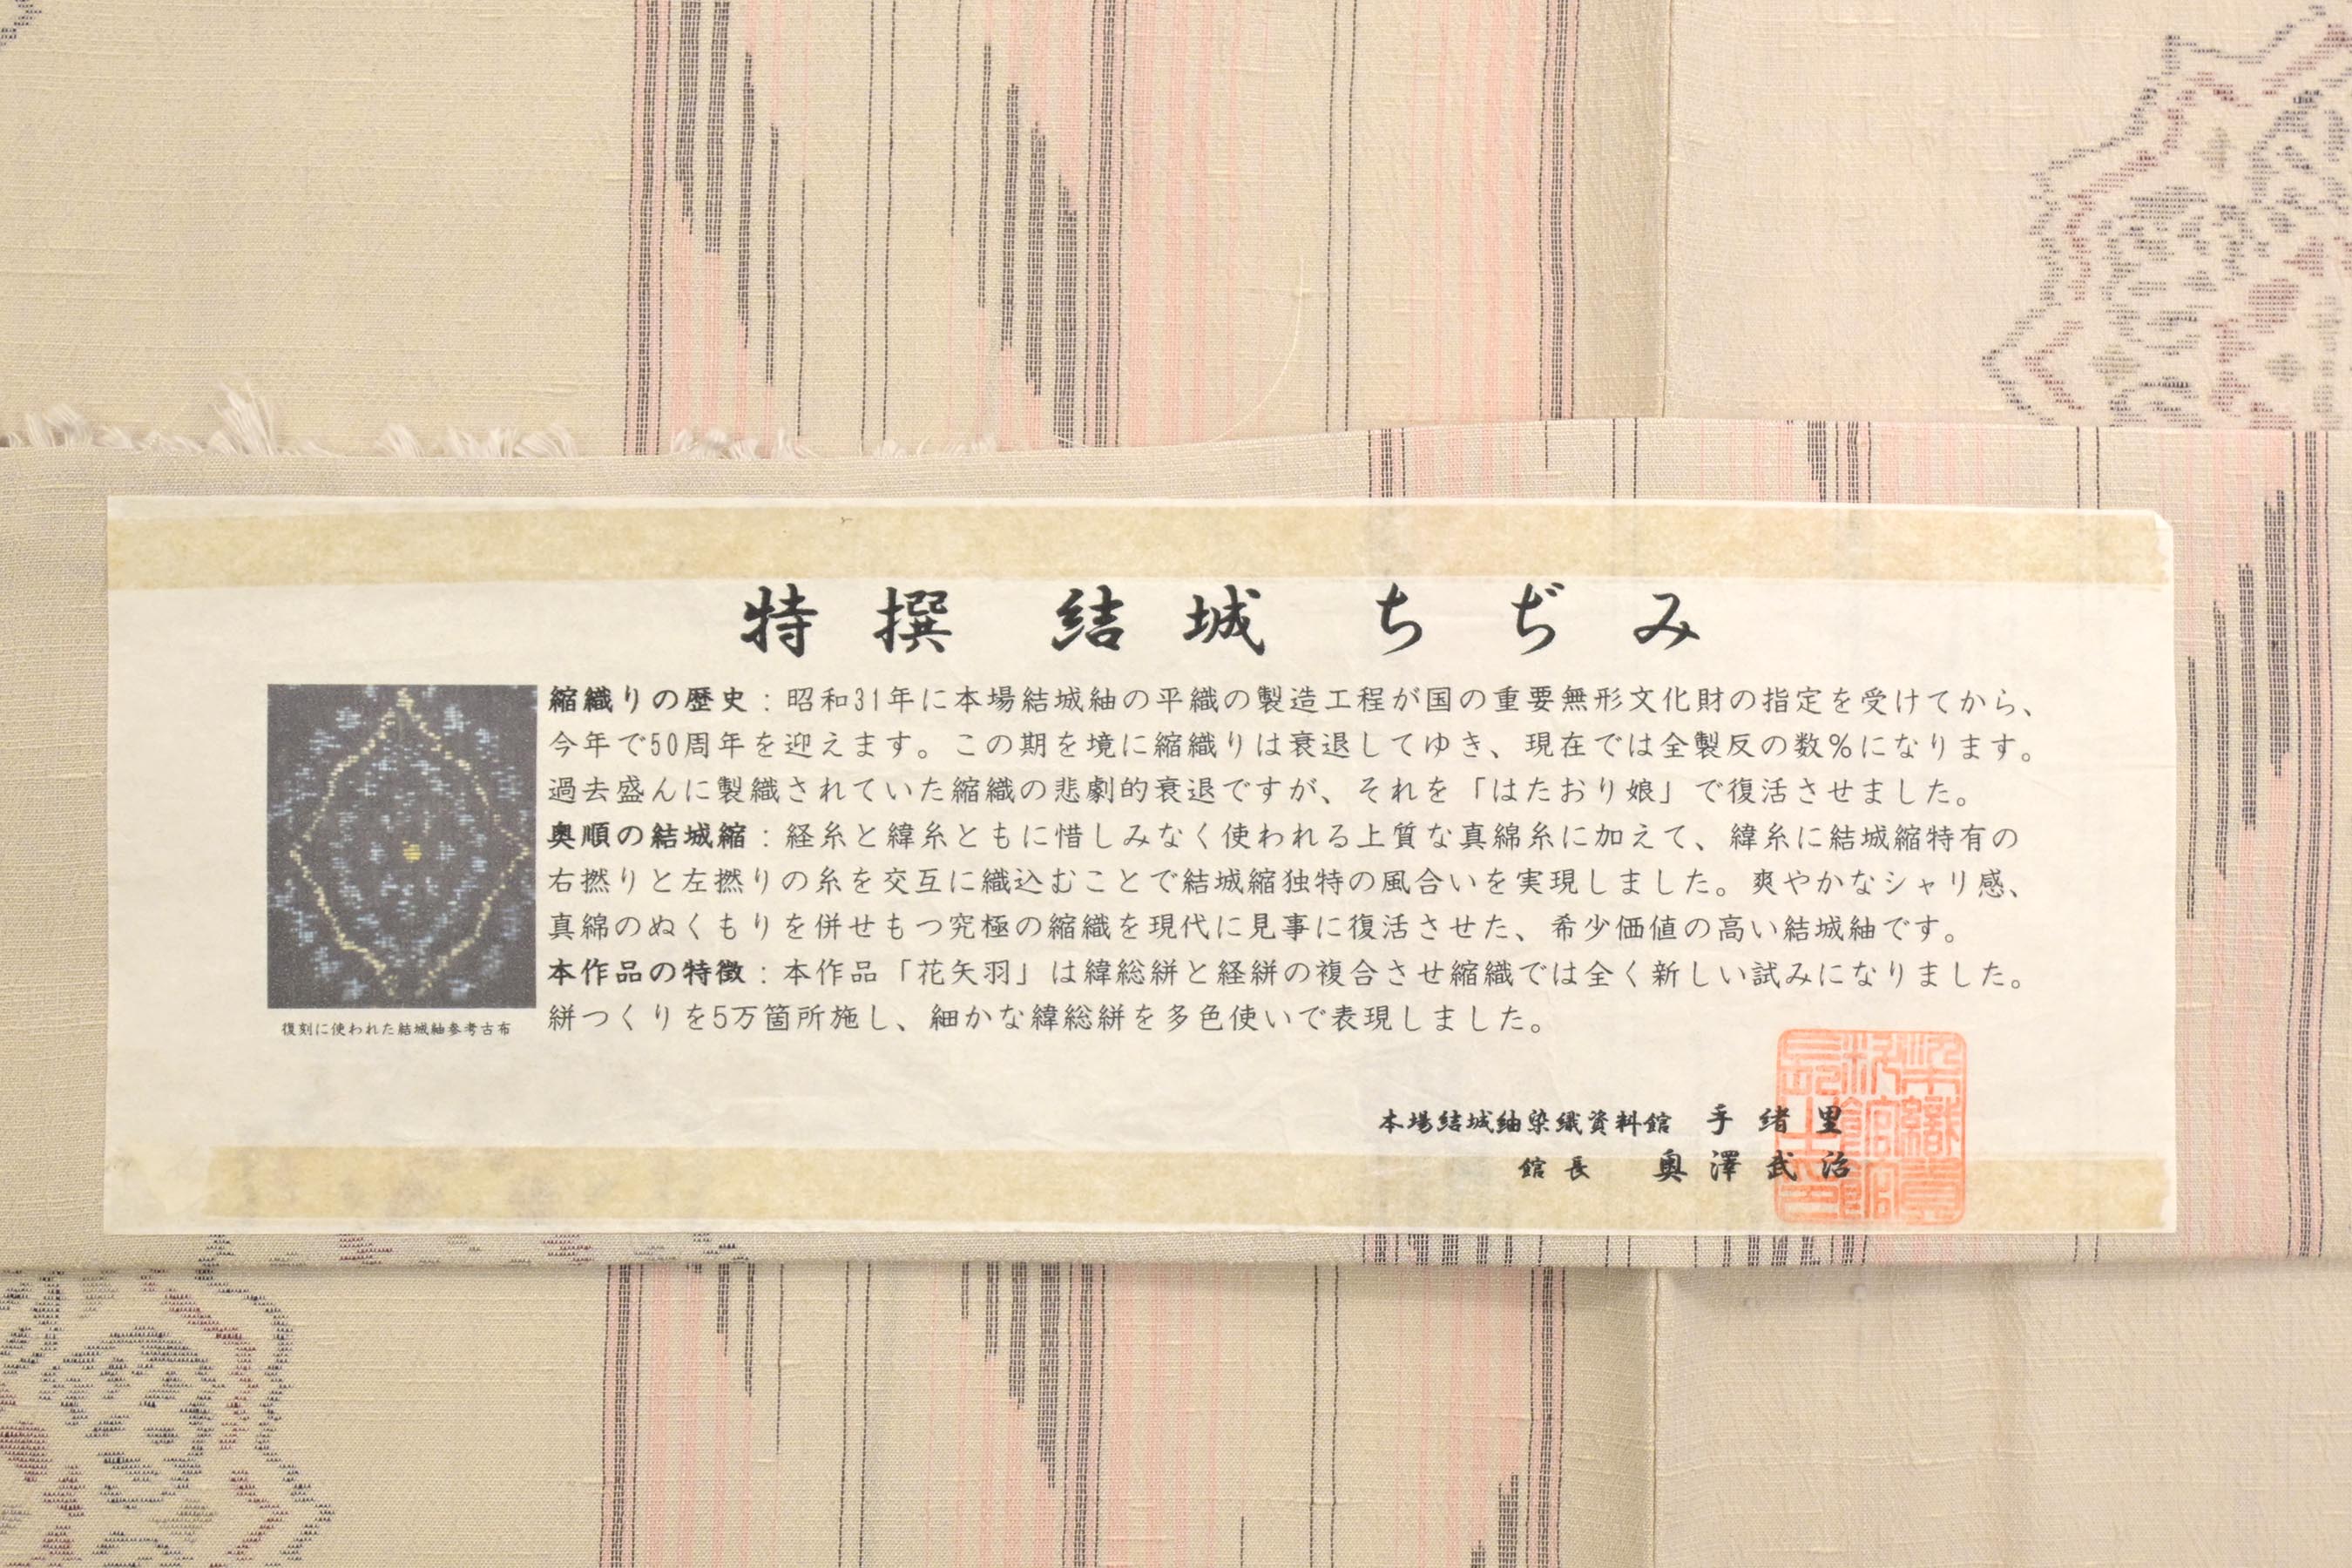 特撰 結城 ちぢみ
縮織りの歴史：昭和31年に本場結城紬の平織の製造工程が国の重要無形文化財の指定を受けてから、
今年で50周年を迎えます。この期を境に縮織りは衰退してゆき、現在では全製反の数％になります。
過去盛んに製織されていた縮織の悲劇的衰退ですが、それを「はたおり娘」で復活させました。
奥順の結城縮：経糸と緯糸ともに惜しみなく使われる上質な真綿糸に加えて、緯糸に結城縮特有の
右撚りと左撚りの糸を交互に織込むことで結城縮独特の風合いを実現しました。爽やかなシャリ感、
真綿のぬくもりを併せもつ究極の縮織を現代に見事に復活させた、希少価値の高い結城紬です。
本作品の特徴：本作品「花矢羽」は緯総絣と経絣の複合させ縮織では全く新しい試みになりました。
絣つくりを5万箇所施し、細かな緯総絣を多色使いで表現しました。
復刻に使われた結城紬参考古布
本場結城紬染織資料館 手緒里
館長 奥澤武治